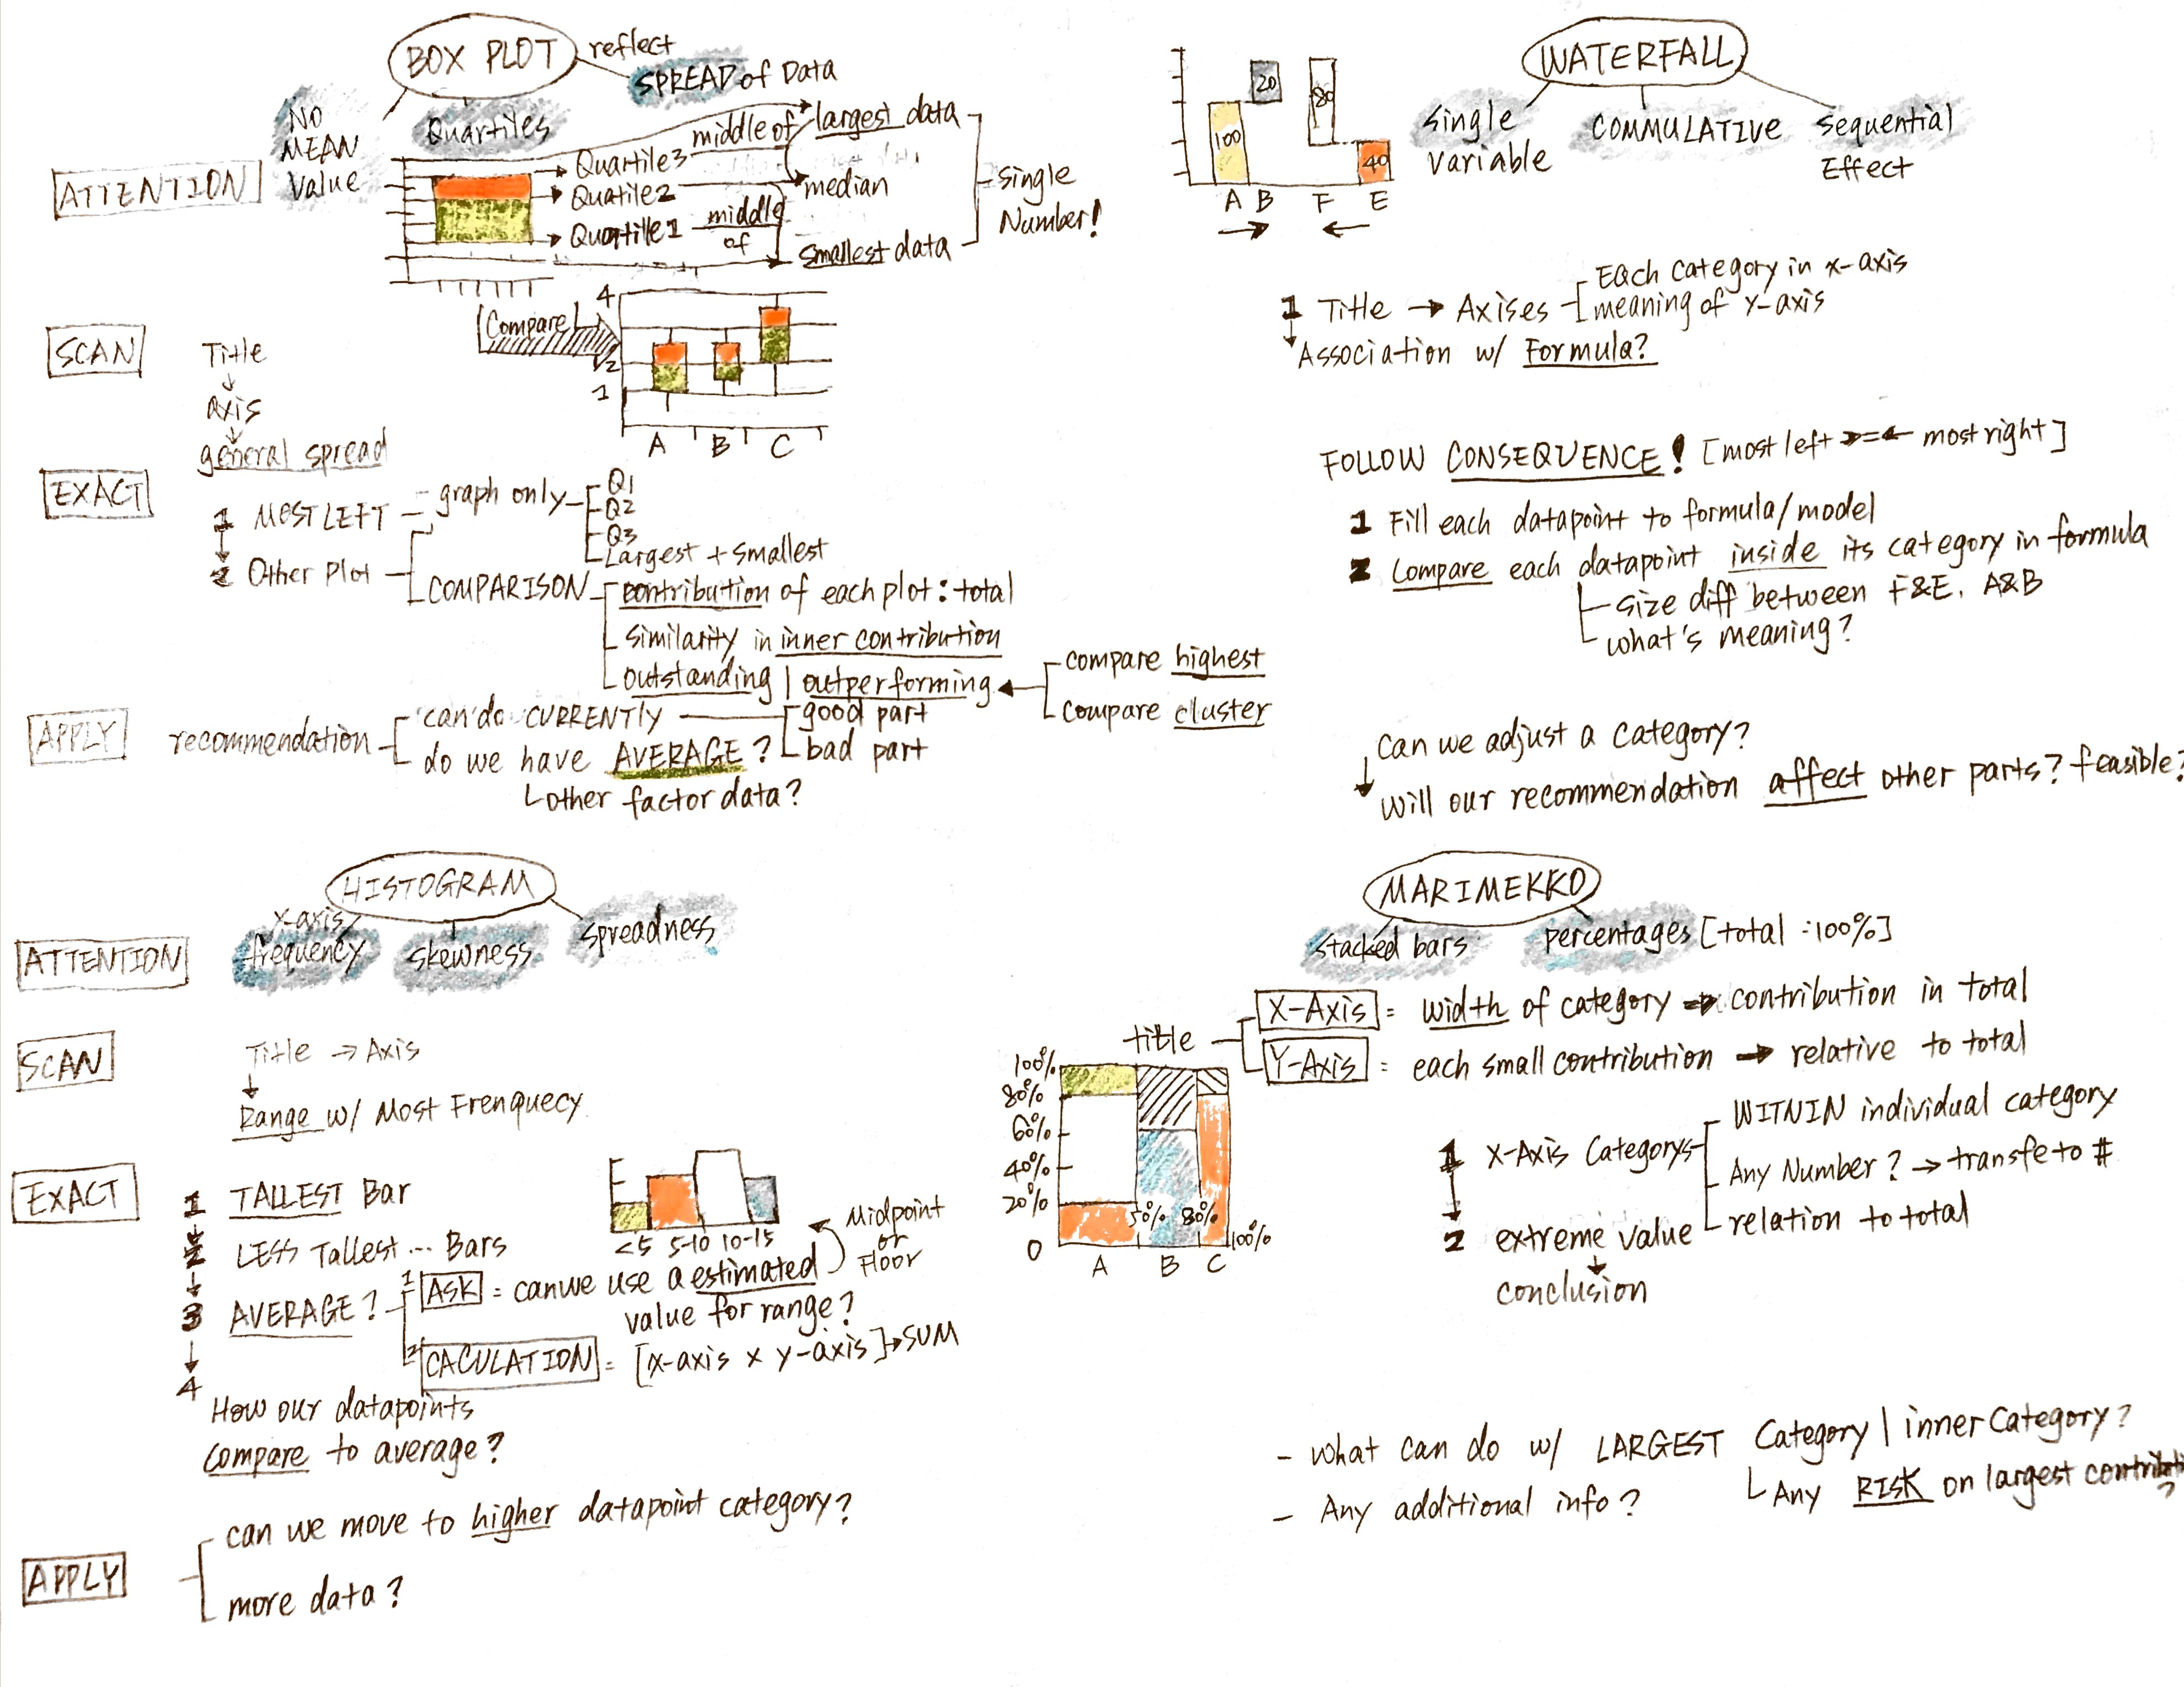 BOX PLOT
reflect
SPREAD of Data
NO
MEAN
Value
Quartiles
ATTENTION
Quartile3
middle of
largest data
Quatile2
median
Quartile1
middle
of
smallest data
Single
Number!
SCAN
Title
axis
general spread
Compare
4
2
1
A B C
EXACT
1 MOST LEFT
graph only
Q1
Q2
Q3
Largest + smallest
2 Other Plot
COMPARISON
contribution of each plot : total
similarity in inner contribution
outstanding | outperforming
compare highest
compare cluster
APPLY
recommendation
can do CURRENTLY
good part
bad part
do we have AVERAGE?
other factor data?
WATERFALL
Single
Variable
COMMULATIVE
Sequential
Effect
100
20
80
40
A B F E
1 Title → Axises
Each Category in x-axis
meaning of Y-axis
Association w/ Formula?
FOLLOW CONSEQUENCE! [most left most right]
1 Fill each datapoint to formula/model
2 Compare each datapoint inside its category in formula
size diff between F&E. A&B
what's meaning?
Can we adjust a category?
will our recommendation affect other parts? feasible?
HISTOGRAM
ATTENTION
x-axis/
frequency
skewness
spreadness
SCAN
Title → Axis
Range w/ Most Frenquecy
EXACT
1 TALLEST Bar
2 LESS Tallest ... Bars
3 AVERAGE?
<5 5-10 10-15
Midpoint
or
Floor
1 ASK = can we use a estimated
value for range?
2 CACULATION = [x-axis x y-axis] → SUM
4
How our datapoints
compare to average?
APPLY
can we move to higher datapoint category?
more data?
MARIMEKKO
stacked bars
percentages [total : 100%]
title
X-Axis = width of category → contribution in total
Y-Axis = each small contribution → relative to total
100%
80%
60%
40%
20%
0
50% 80% 100%
A B C
1 X-Axis Categorys
WITNIN individual category
Any Number? → transfe to #
relation to total
2 extreme value
conclusion
- what can do w/ LARGEST Category | inner Category?
Any RISK on largest
- Any additional info?